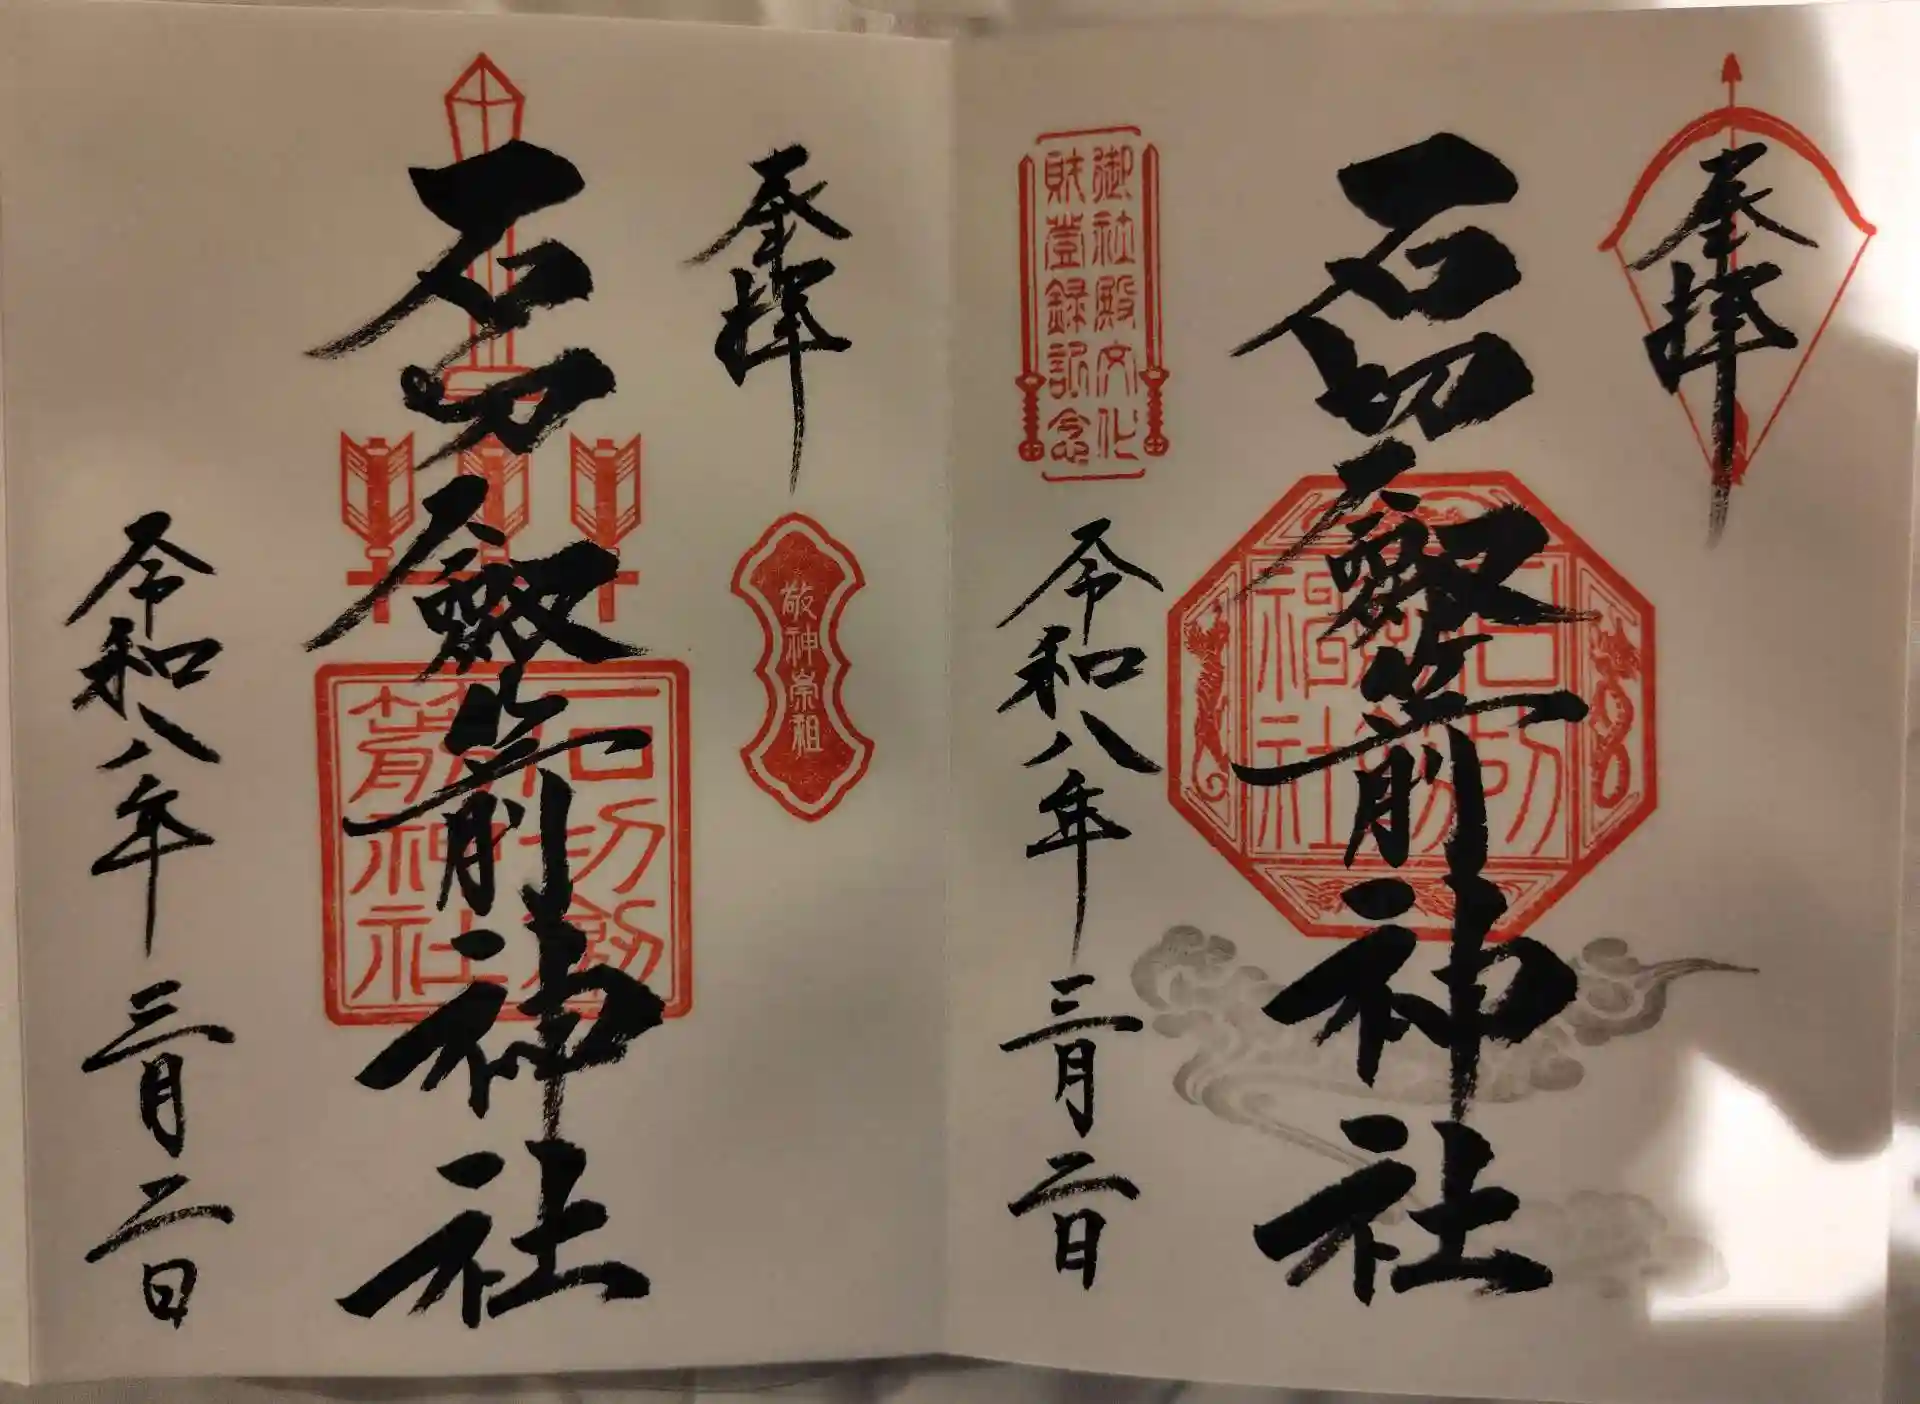 奉拝
石切劔箭神社
石切劔箭神社
御社殿文化
財登録記念
令和八年 三月二日
奉拝
敬神崇祖
石切劔箭神社
石切劔
箭神社
令和八年 三月二日